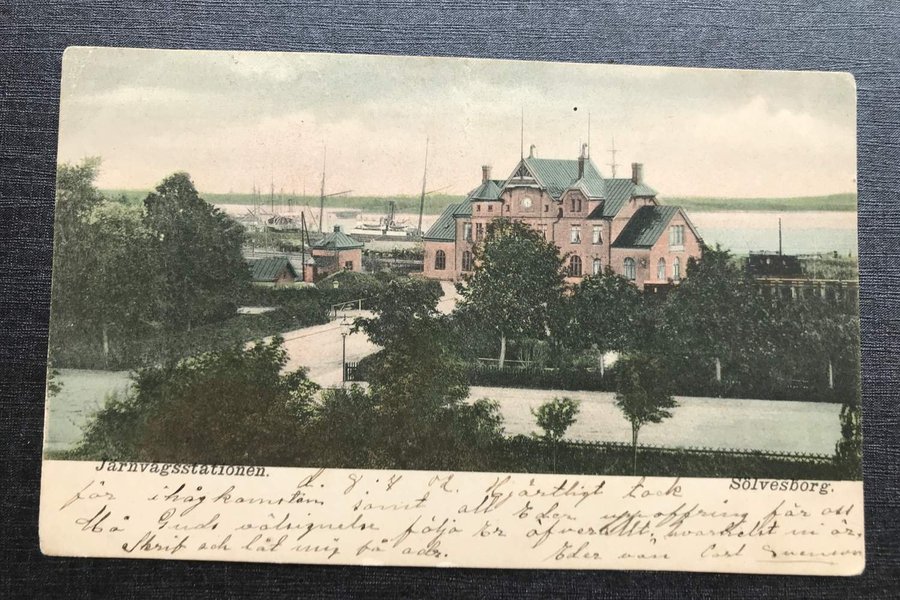 Järnvägsstationen.
Sölvesborg.
d. 8 7 02. Hjärtligt Tack
för ihågkomsten samt all Eder uppoffring för oss
Må Guds välsignelse följa Er överallt, hvarhelst ni är.
Skrif och låt mig få adr. Eder vän Carl Svenson